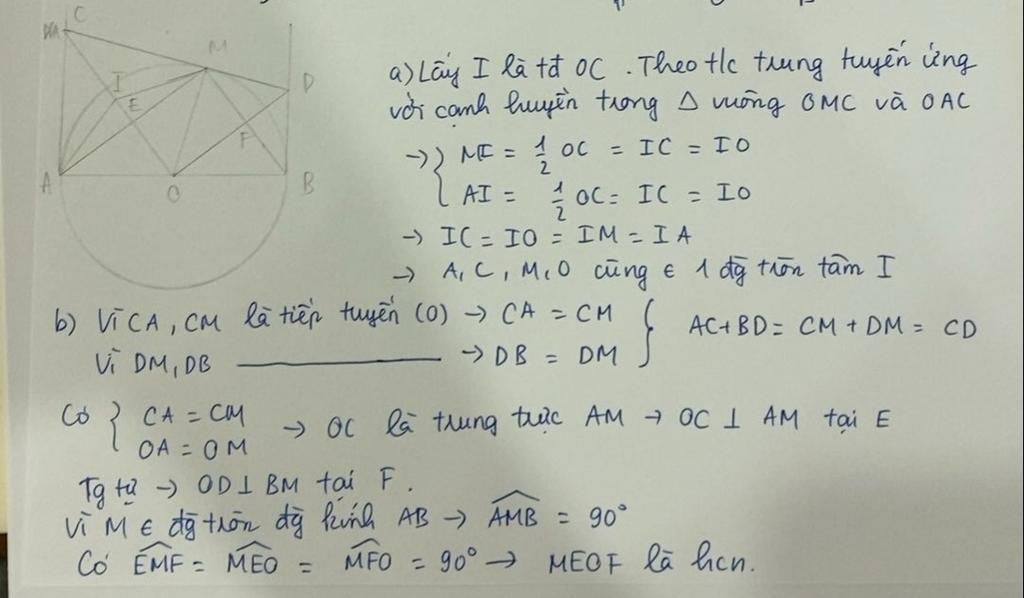 C
M
I
E
D
F
A
O
B
a) Lấy I là tđ OC. Theo t/c trung tuyến ứng
với cạnh huyền trong Δ vuông OMC và OAC
→ { MI = 1/2 OC = IC = IO
AI = 1/2 OC = IC = IO
→ IC = IO = IM = IA
→ A, C, M, O cùng ∈ 1 đg tròn tâm I
b) Vì CA, CM là tiếp tuyến (O) → CA = CM } AC+BD = CM + DM = CD
Vì DM, DB ———— → DB = DM
Có { CA = CM → OC là trung trực AM → OC ⊥ AM tại E
OA = OM
Tg tự → OD ⊥ BM tại F.
Vì M ∈ đg tròn đg kính AB → \widehat{AMB} = 90°
Có \widehat{EMF} = \widehat{MEO} = \widehat{MFO} = 90° → MEOF là hcn.